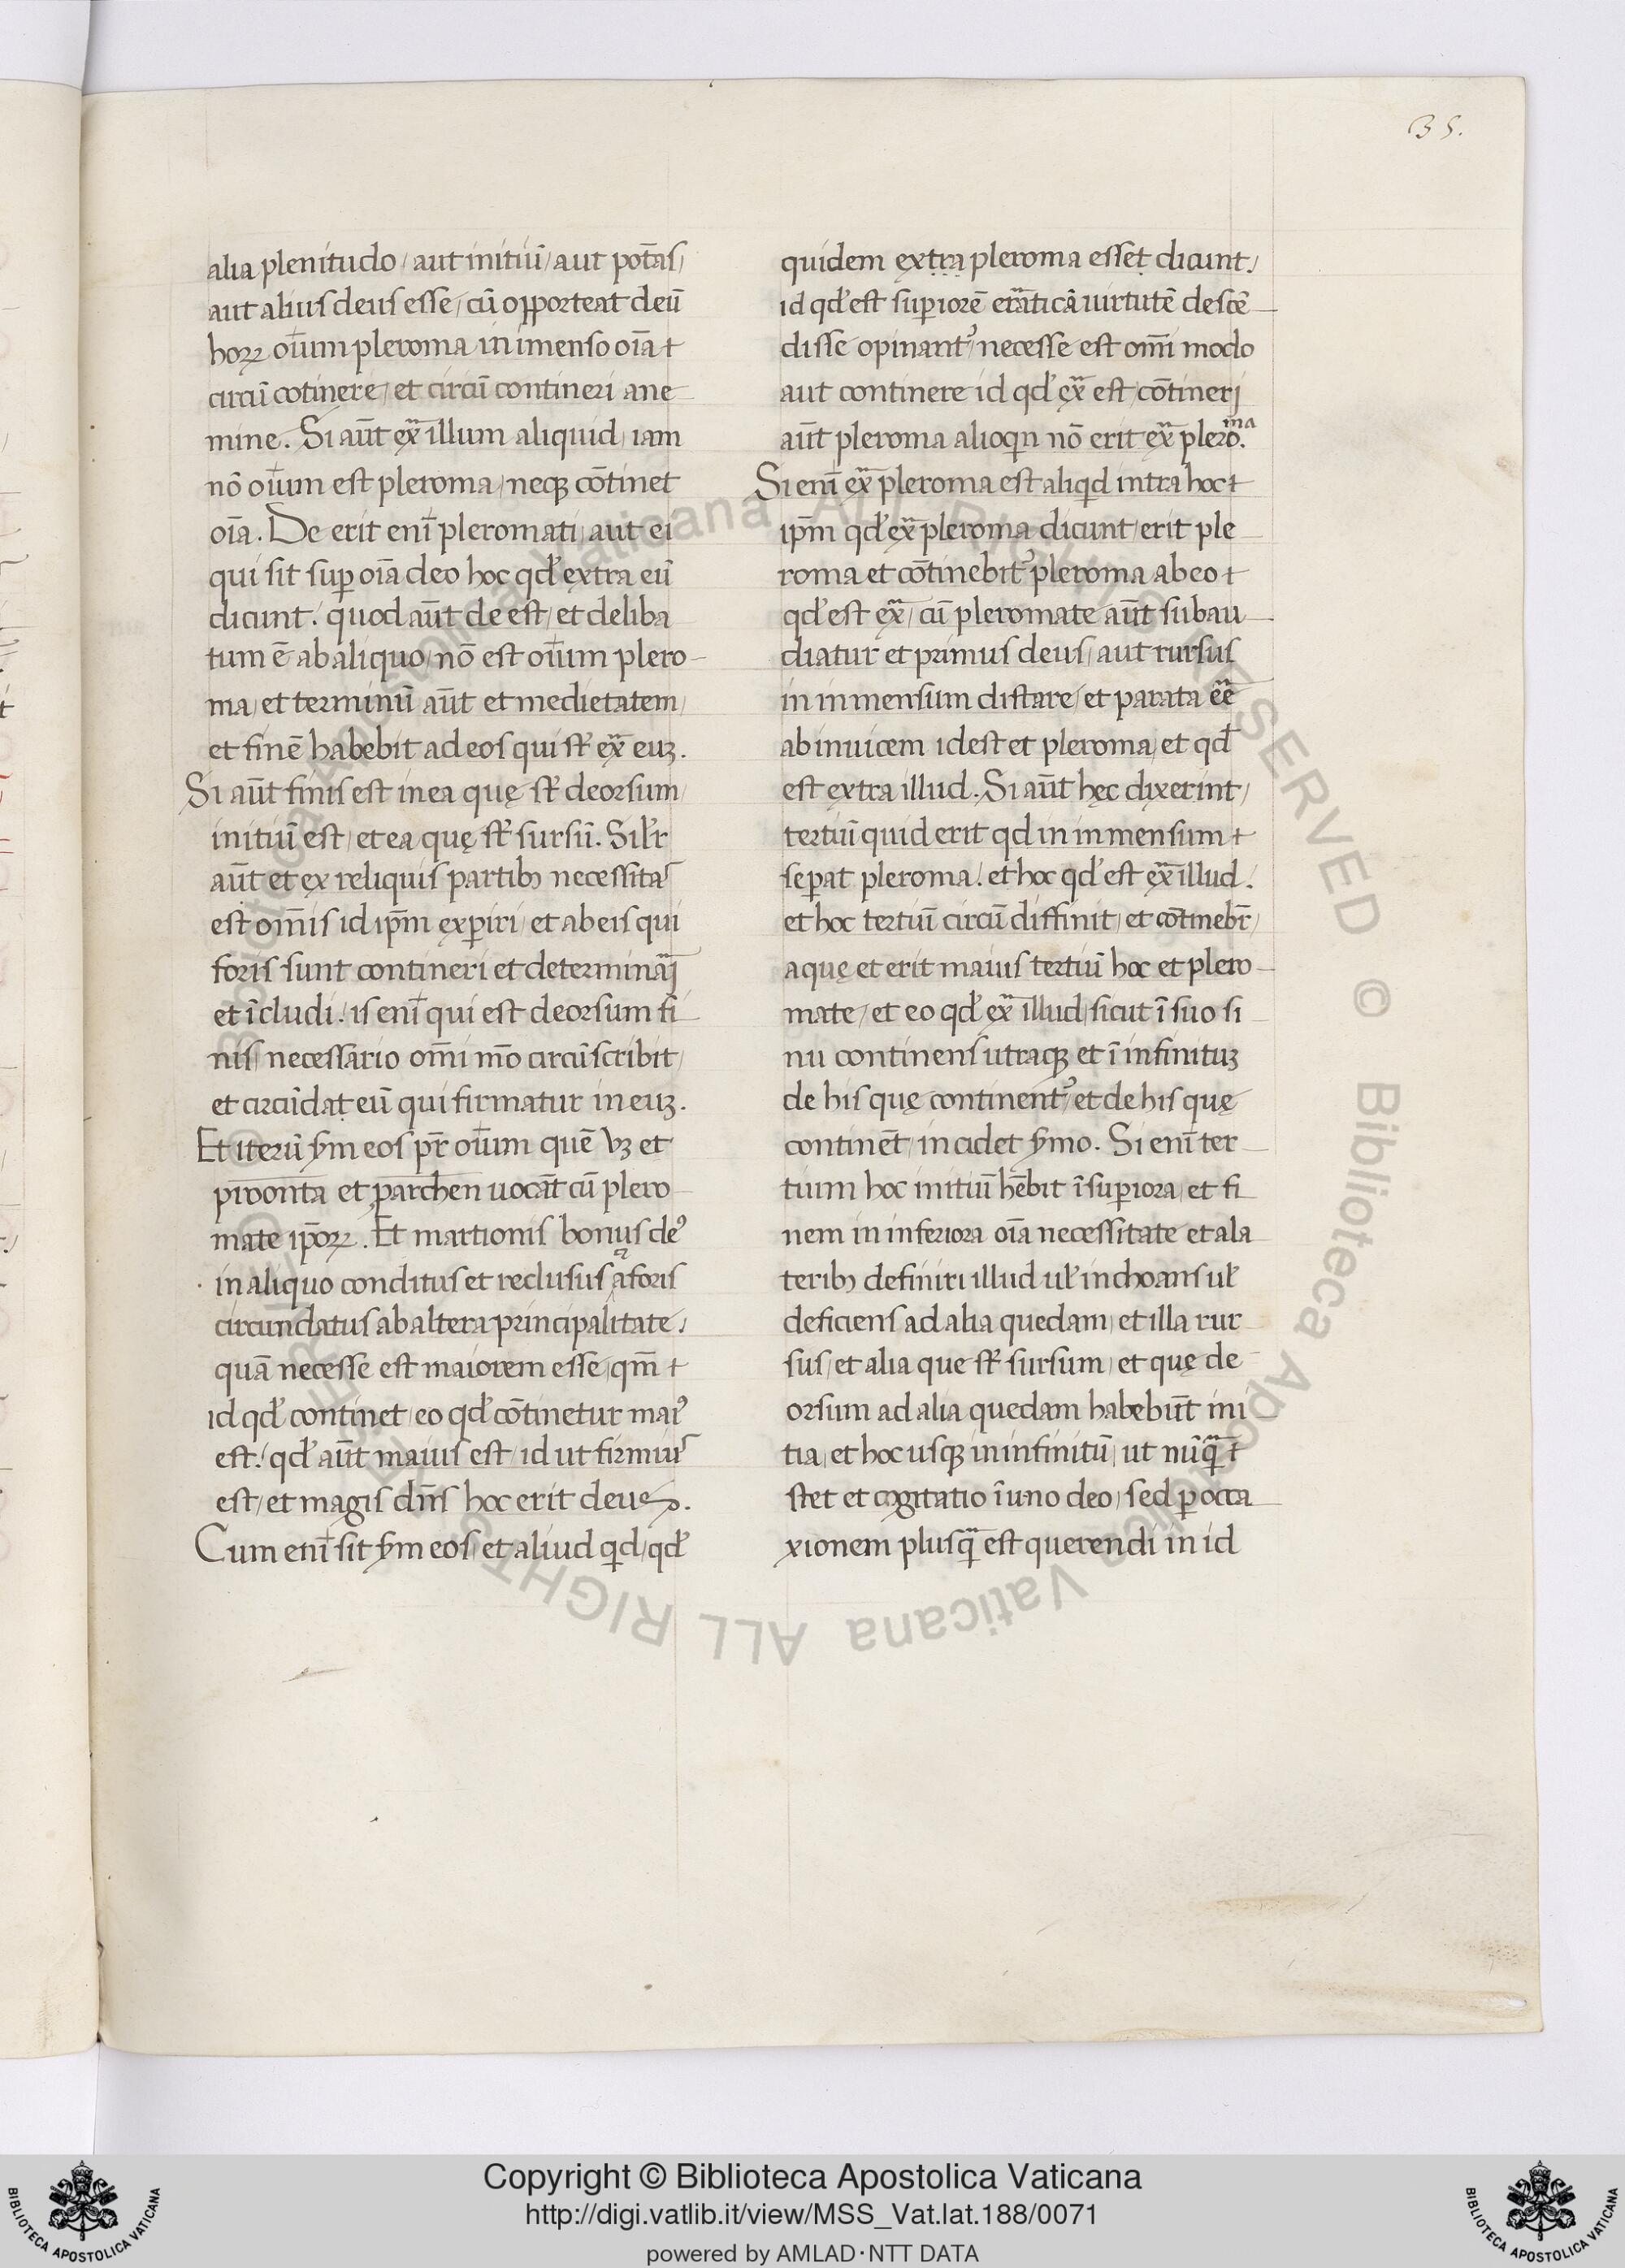 35.
alia plenitudo / aut initiū / aut pot̄as /
aut alius deus esse / cū opporteat deū
hoꝝ oīum pleroma in imenso oīa
circū cotinere / et circū contineri a ne
mine. Si aūt ex̄ illum aliquid / iam
nō oīum est pleroma / neqꝫ cōtinet
oīa. De erit enī pleromati / aut ei
qui sit suꝑ oīa deo hoc qđ extra eū
dicunt. quod aūt de est / et deliba
tum ē ab aliquo / nō est oīum plero-
ma / et terminū aūt et medietatem /
et finē habebit ad eos qui st̄ ex̄ euꝫ.
Si aūt finis est in ea quę st̄ deorsum /
initiū est / et ea quę st̄ sursū. Silr̄
aūt et ex reliquis partibꝫ necessitas
est om̄is id ip̄m exꝑiri / et ab eis qui
foris sunt contineri et determinari
et īcludi. is enī qui est deorsum fi
nis / necessario om̄i mō circūscribit /
et circūdat eū qui firmatur in euꝫ.
Et iterū ẜm eos pr̄ oīum quē vꝫ et
proonta et parchen uocāt cū plero
mate ip̄oꝝ. Et martionis bonus deꝰ
in aliquo conditus et reclusus a foris
circundatus ab altera principalitate.
quā necesse est maiorem esse / qm̄
id qđ continet / eo qđ cōtinetur maiꝰ
est. qđ aūt maius est / id ut firmius
est / et magis dn̄s hoc erit deus.
Cum enī sit ẜm eos / et aliud qd / qđ
quidem extra pleroma esset dicunt.
id qđ est suꝑiorē erraticā uirtutē descē
disse opinantᷣ / necesse est om̄i modo
aut continere id qđ ex̄ est / cōtineri
aūt pleroma alioqn nō erit ex̄ pleroma.
Si enī ex̄ pleroma est aliqd intra hoc
ip̄m qđ ex̄ pleroma dicunt / erit ple
roma et cōtinebitᷣ pleroma ab eo
qđ est ex̄ / cū pleromate aūt subau
diatur et primus deus / aut rursus
in inmensum distare / et parata ee
ab inuicem idest et pleroma / et qđ
est extra illud. Si aūt hęc dixerint /
tertiū quid erit qd in inmensum
seꝑat pleroma. et hoc qđ est ex̄ illud.
et hoc tertiū circū diffinit / et cōtinebr̄ /
aquę et erit maius tertiū hoc et plero-
mate / et eo qđ ex̄ illud / sicut ī suo si
nu continens utraqꝫ et ī infinituꝫ
de his quę continentᷣ / et de his quę
continēt / incidet ẜmo. Si enī ter
tium hoc initiū hēbit ī suꝑiora / et fi
nem in inferiora oīa necessitate et a la
teribꝫ definiri illud ul̄ inchoans ul̄
deficiens ad alia quedam / et illa rur
sus / et alia que st̄ sursum / et quę de
orsum ad alia quedam habebūt ini
tia / et hoc usqꝫ in infinitū / ut nūq̄
stet et cogitatio ī uno deo / sed ꝑ occa
xionem plusq̄ est querendi in id
Copyright © Biblioteca Apostolica Vaticana
http://digi.vatlib.it/view/MSS_Vat.lat.188/0071
powered by AMLAD·NTT DATA
BIBLIOTECA APOSTOLICA VATICANA
BIBLIOTECA APOSTOLICA VATICANA